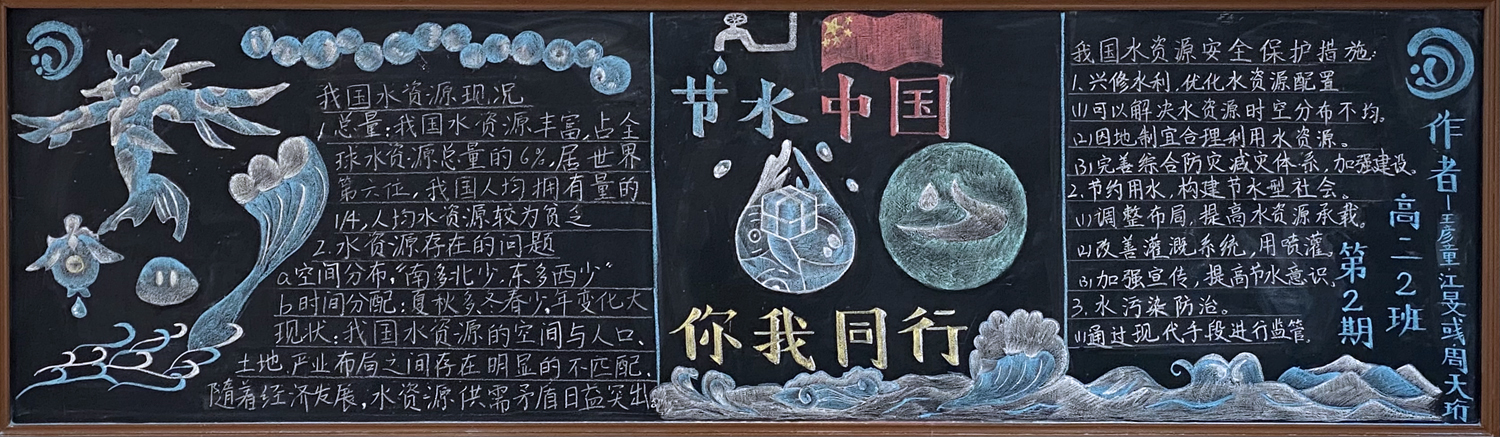 我国水资源现况
1.总量:我国水资源丰富,占全
球水资源总量的6%,居世界
第六位,我国人均拥有量的
1/4,人均水资源较为贫乏
2.水资源存在的问题
a.空间分布,"南多北少,东多西少"
b.时间分配:夏秋多冬春少,年变化大
现状:我国水资源的空间与人口、
土地、产业布局之间存在明显的不匹配,
随着经济发展,水资源供需矛盾日益突出
节水中国
你我同行
我国水资源安全保护措施:
1.兴修水利,优化水资源配置
(1)可以解决水资源时空分布不均。
(2)因地制宜合理利用水资源。
(3)完善综合防灾减灾体系,加强建设。
2.节约用水,构建节水型社会。
(1)调整布局,提高水资源承载。
(2)改善灌溉系统,用喷灌。
(3)加强宣传,提高节水意识。
3.水污染防治。
(1)通过现代手段进行监管。
作者—王彦童 江旻彧 周天珩
高二2班
第2期